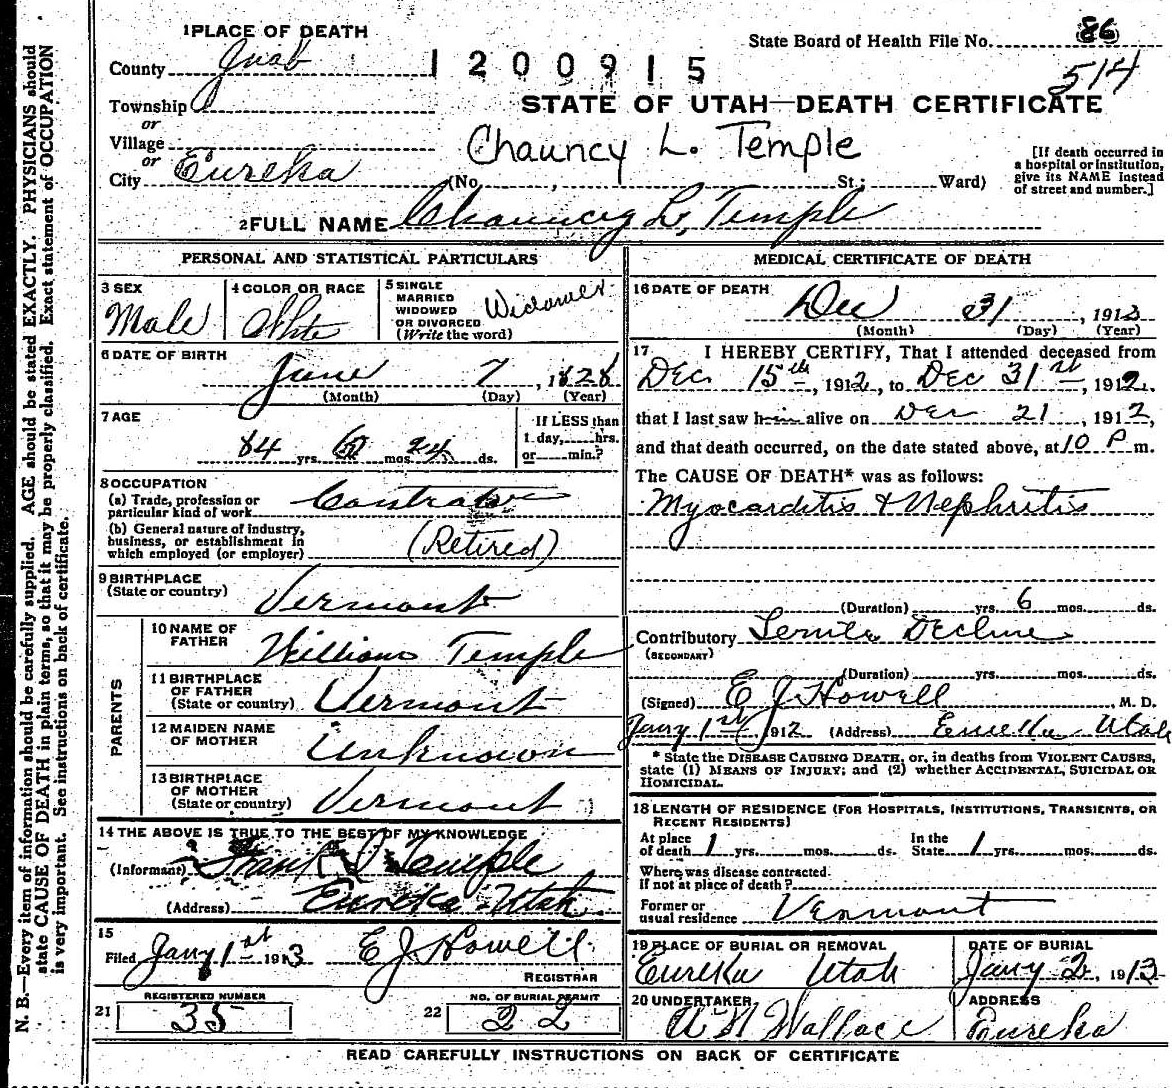 1 PLACE OF DEATH
State Board of Health File No. 86
County Juab
1200915
514
Township
or
STATE OF UTAH—DEATH CERTIFICATE
Village
or
Chauncy L. Temple
City Eureka (No. , St.; Ward)
[If death occurred in
a hospital or institution,
give its NAME instead
of street and number.]
2 FULL NAME Chauncey L. Temple
PERSONAL AND STATISTICAL PARTICULARS
3 SEX
Male
4 COLOR OR RACE
White
5 SINGLE
MARRIED
WIDOWED
OR DIVORCED
(Write the word)
Widower
6 DATE OF BIRTH
June 7, 1828
(Month) (Day) (Year)
7 AGE
84 yrs. 6 mos. 24 ds.
If LESS than
1 day, hrs.
or min.?
8 OCCUPATION
(a) Trade, profession or
particular kind of work
(b) General nature of industry,
business, or establishment in
which employed (or employer) (Retired)
9 BIRTHPLACE
(State or country) Vermont
PARENTS
10 NAME OF
FATHER William Temple
11 BIRTHPLACE
OF FATHER
(State or country) Vermont
12 MAIDEN NAME
OF MOTHER Unknown
13 BIRTHPLACE
OF MOTHER
(State or country) Vermont
14 THE ABOVE IS TRUE TO THE BEST OF MY KNOWLEDGE
(Informant) Frank Temple
(Address) Eureka Utah.
15
Filed Jany 1st 1913 E J Howell
REGISTRAR
REGISTERED NUMBER
21 35
NO. OF BURIAL PERMIT
22 22
MEDICAL CERTIFICATE OF DEATH
16 DATE OF DEATH
Dec 31, 1912
(Month) (Day) (Year)
17 I HEREBY CERTIFY, That I attended deceased from
Dec 15th, 1912, to Dec 31st, 1912,
that I last saw him alive on Dec 21, 1912,
and that death occurred, on the date stated above, at 10 P m.
The CAUSE OF DEATH* was as follows:
Myocarditis & Nephritis
(Duration) yrs. 6 mos. ds.
Contributory Senile Decline
(SECONDARY)
(Duration) yrs. mos. ds.
(Signed) E J Howell, M. D.
Jany 1st 1912 (Address) Eureka Utah
* State the DISEASE CAUSING DEATH, or, in deaths from VIOLENT CAUSES,
state (1) MEANS OF INJURY; and (2) whether ACCIDENTAL, SUICIDAL OR
HOMICIDAL.
18 LENGTH OF RESIDENCE (FOR HOSPITALS, INSTITUTIONS, TRANSIENTS, OR
RECENT RESIDENTS)
At place
of death 1 yrs. mos. ds.
In the
State 1 yrs. mos. ds.
Where was disease contracted.
If not at place of death?
Former or
usual residence Vermont
19 PLACE OF BURIAL OR REMOVAL
Eureka Utah
DATE OF BURIAL
Jany 2, 1913
20 UNDERTAKER
Wallace
ADDRESS
Eureka
READ CAREFULLY INSTRUCTIONS ON BACK OF CERTIFICATE
N. B.—Every item of information should be carefully supplied. AGE should be stated EXACTLY. PHYSICIANS should
state CAUSE OF DEATH in plain terms, so that it may be properly classified. Exact statement of OCCUPATION
is very important. See instructions on back of certificate.